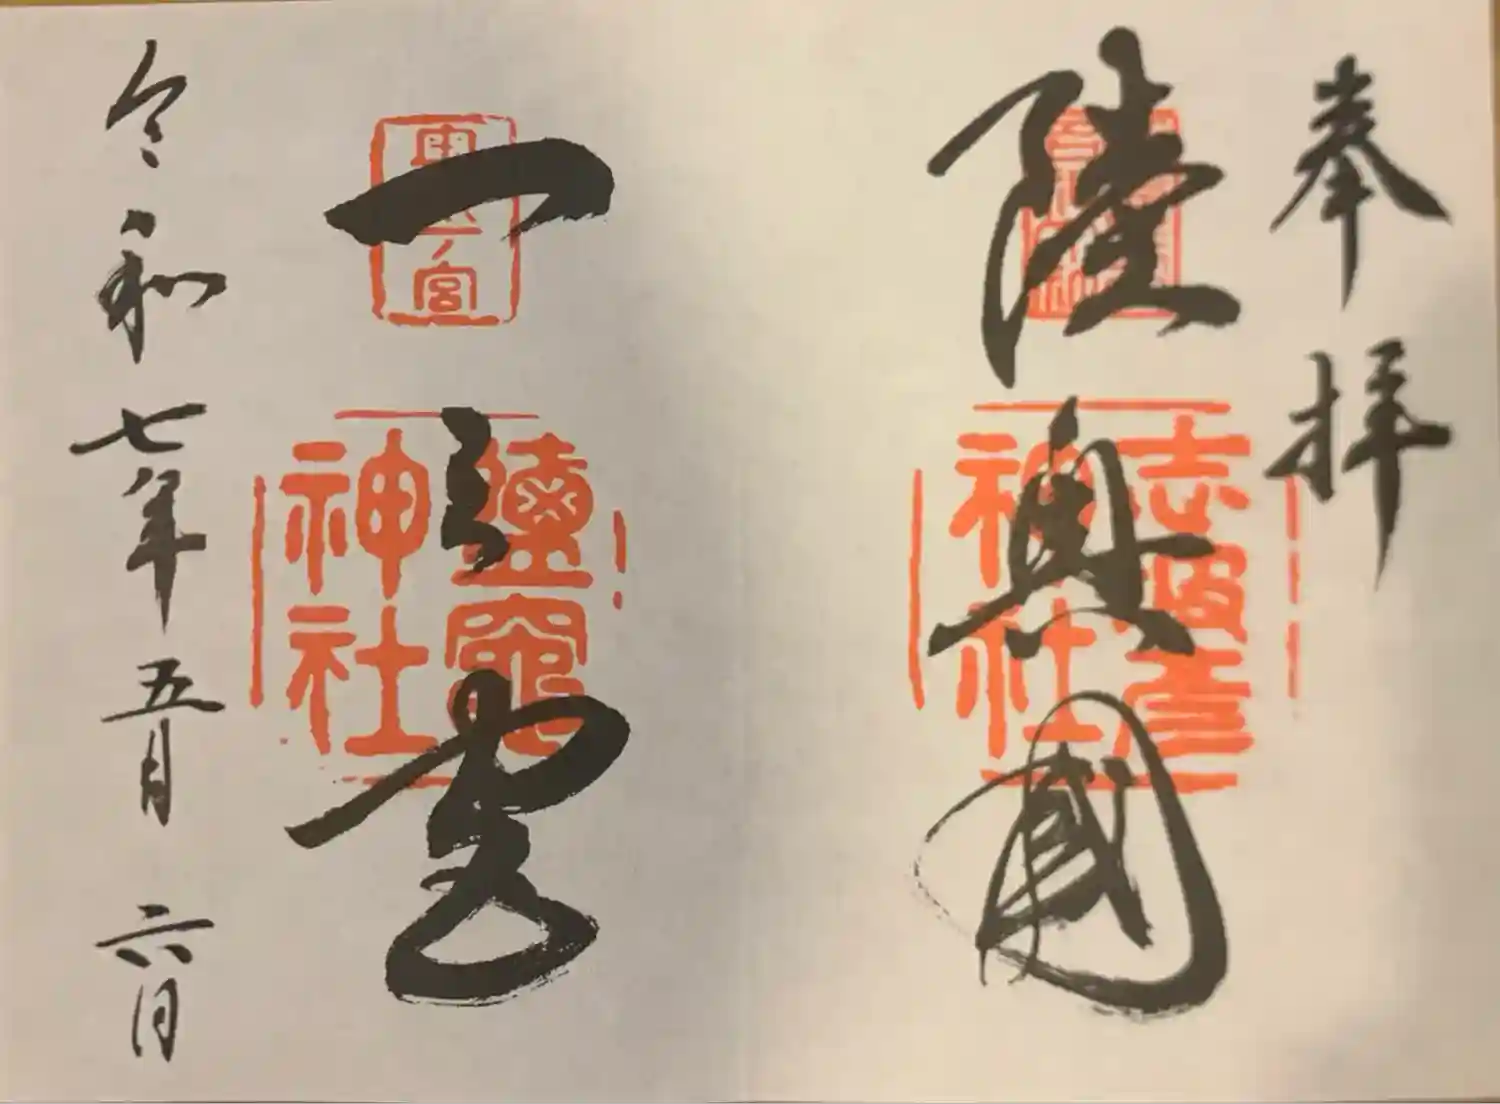 奉拝
陸奥國
志波彦
神社
一之宮
東北
一ノ宮
鹽竈
神社
令和七年五月六日